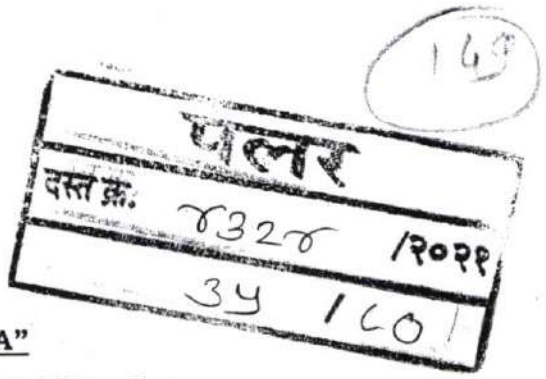 पलर
दस्त क्र. ४३२४ /२०२१
३५ / ८०
A"